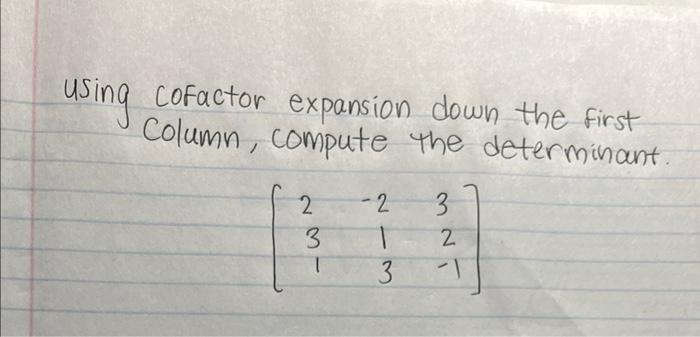 using cofactor expansion down the first
Column, compute the determinant.
2 -2 3
3 1 2
1 3 -1